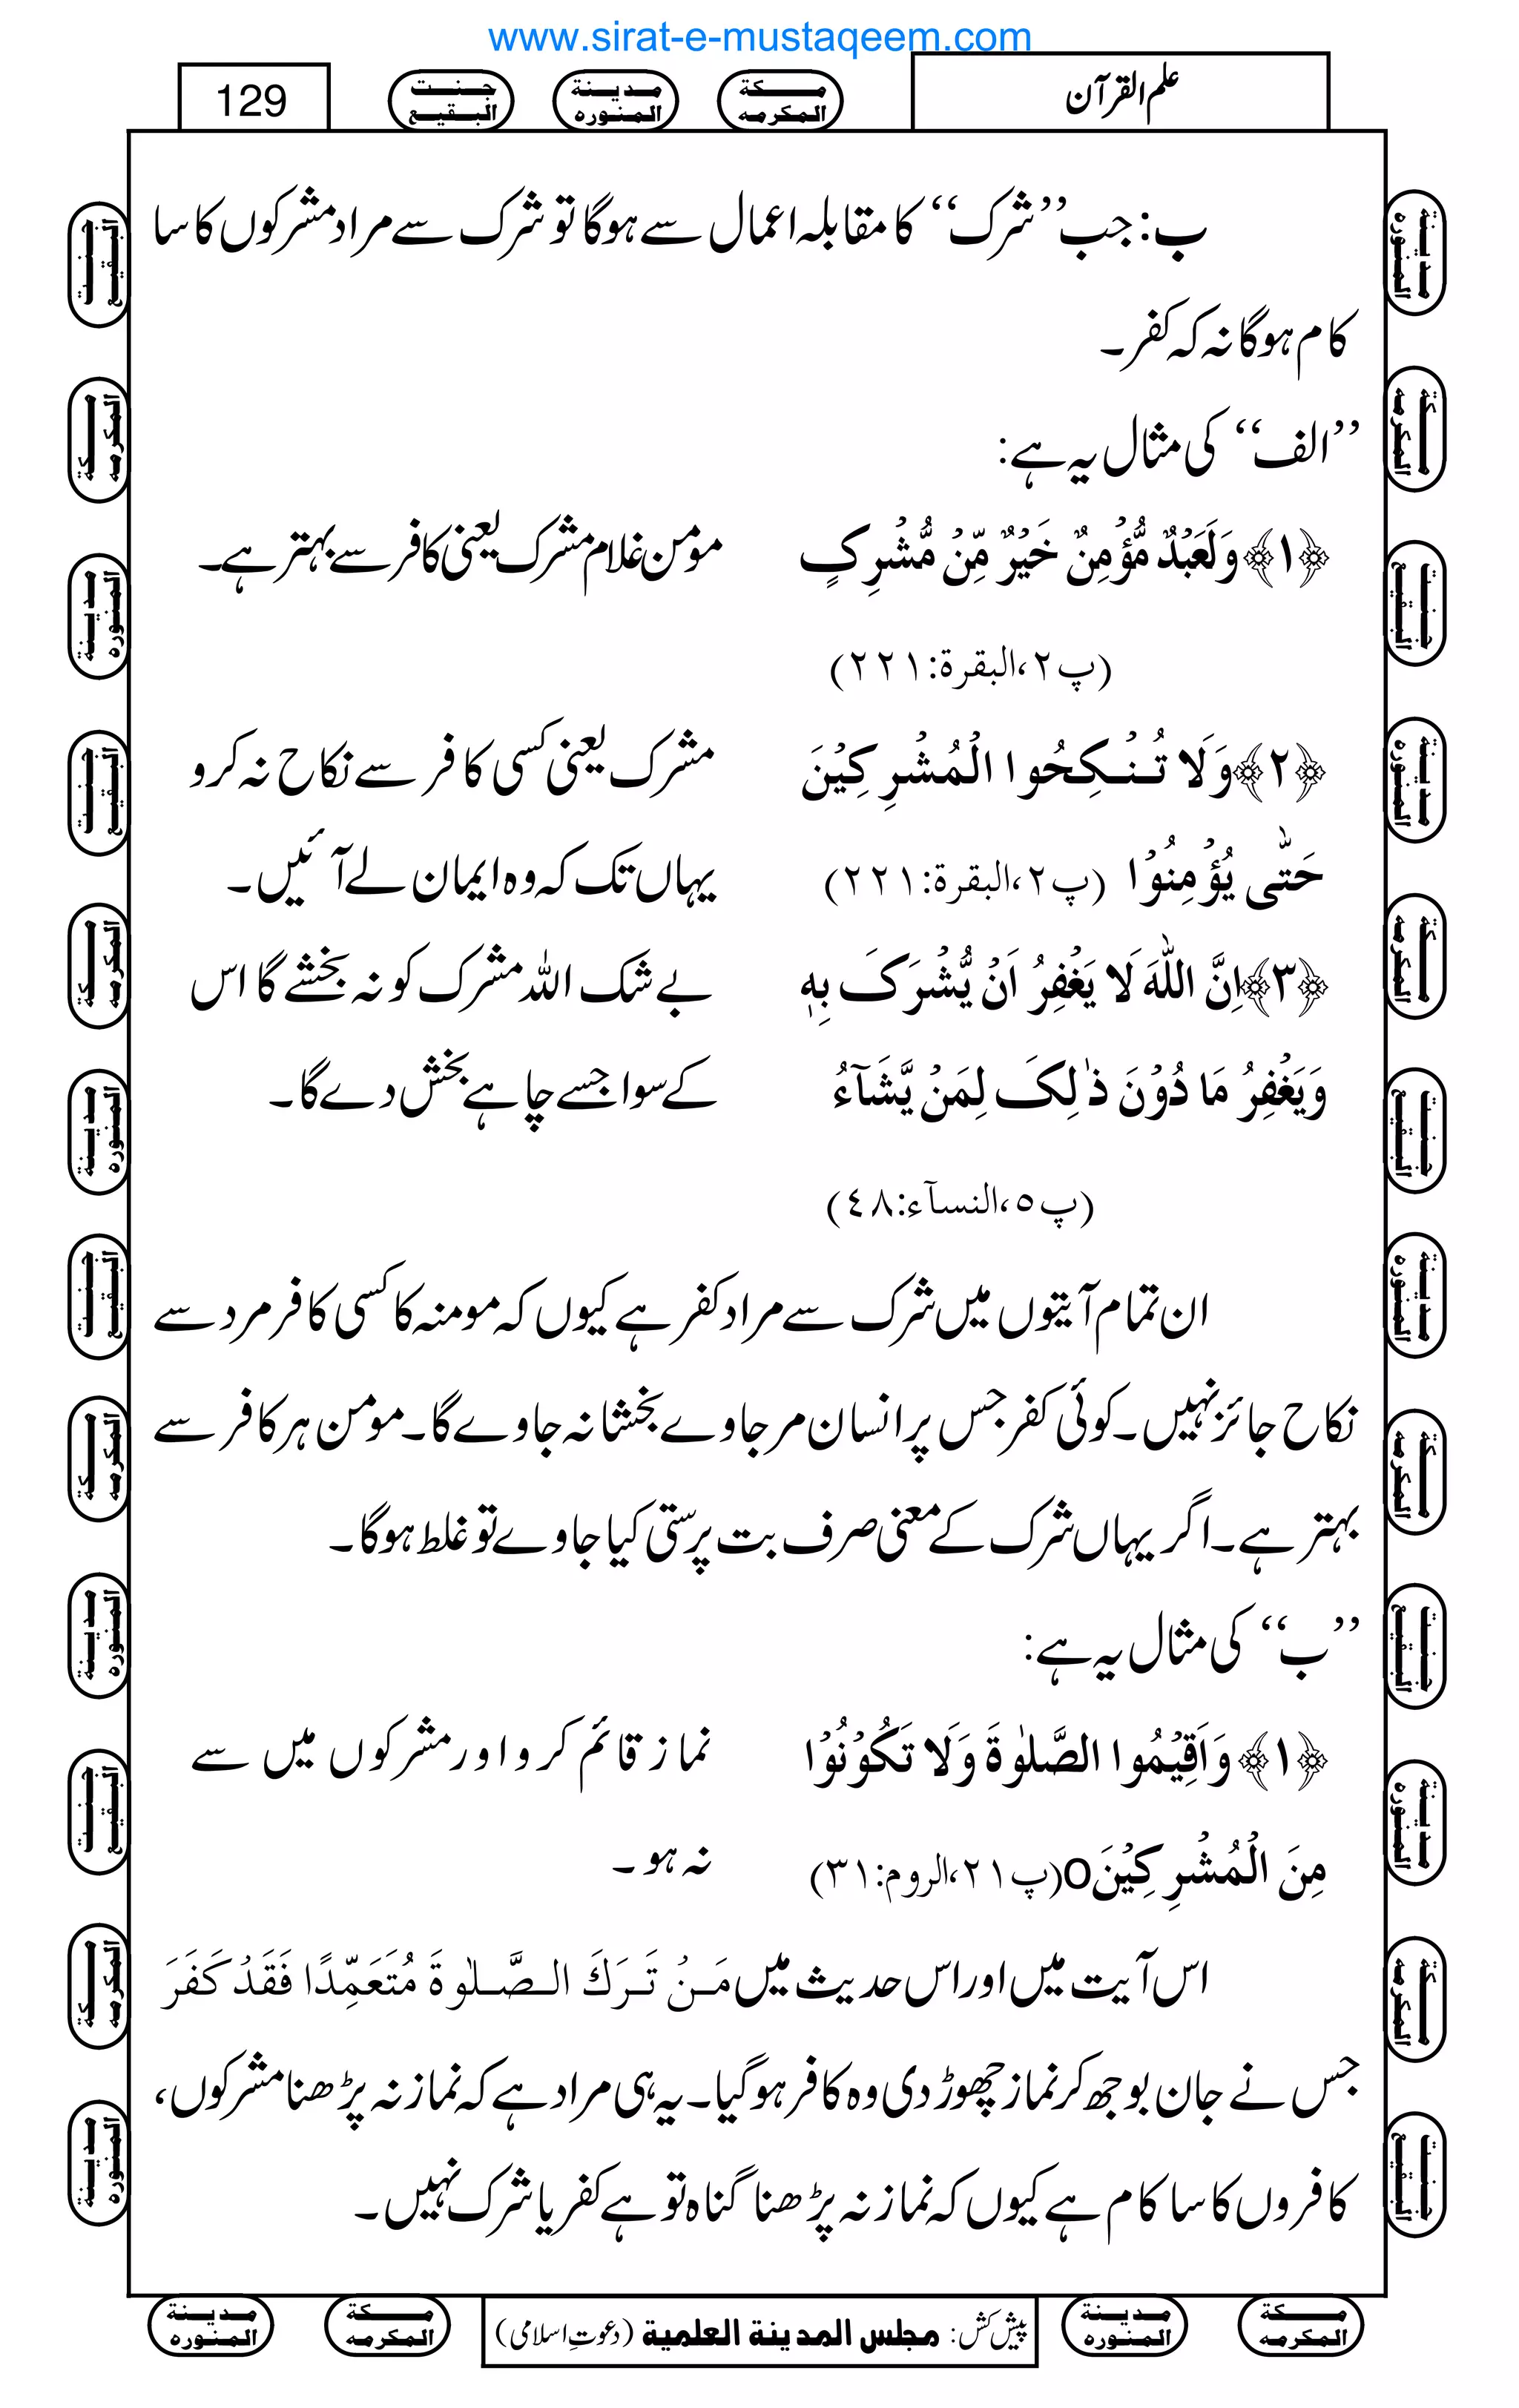 www.sirat-e-mustaqeem.com
علم القرآن
مـكة المكرمه
مـدينة المنوره
جنت البقيع
129
ب: جب ’’شرک‘‘ کا مقابلہ اعمال سے ہوگا تو شرک سے مراد مشرکوں کا سا
کام ہوگا نہ کہ کفر۔
’’الف‘‘ کی مثال یہ ہے:
﴿۱﴾ وَلَعَبْدٌ مُّؤْمِنٌ خَیْرٌ مِّنْ مُّشْرِکٍ
(پ۲،البقرة:۲۲۱)
مومن غلام مشرک یعنی کافر سے بہتر ہے۔
﴿۲﴾ وَلَا تُنْکِحُوا الْمُشْرِکِیْنَ
حَتّٰی یُؤْمِنُوْا (پ۲،البقرة:۲۲۱)
مشرک یعنی کسی کافر سے نکاح نہ کرو
یہاں تک کہ وہ ایمان لے آئیں۔
﴿۳﴾ اِنَّ اللّٰهَ لَا یَغْفِرُ اَنْ یُّشْرَکَ بِهٖ
وَیَغْفِرُ مَا دُوْنَ ذٰلِکَ لِمَنْ یَّشَآءُ
(پ۵،النسآء:۴۸)
بے شک اللہ مشرک کو نہ بخشے گا اس
کے سوا جسے چاہے بخش دے گا۔
ان تمام آیتوں میں شرک سے مراد کفر ہے کیوں کہ مومنہ کا کسی کافر مرد سے
نکاح جائز نہیں۔ کوئی کفر جس پر انسان مر جاوے بخشا نہ جاوے گا۔ مومن ہر کافر سے
بہتر ہے۔ اگر یہاں شرک کے معنی صرف بت پرستی کیا جاوے تو غلط ہوگا۔
’’ب‘‘ کی مثال یہ ہے:
﴿۱﴾ وَاَقِیْمُوا الصَّلٰوةَ وَلَا تَکُوْنُوْا
مِنَ الْمُشْرِکِیْنَO (پ۲۱،الروم:۳۱)
نماز قائم کرو اور مشرکوں میں سے
نہ ہو۔
اس آیت میں اور اس حدیث میں مَنْ تَرَكَ الصَّلٰوةَ مُتَعَمِّدًا فَقَدْ كَفَرَ
جس نے جان بوجھ کر نماز چھوڑ دی وہ کافر ہوگیا۔ یہ ہی مراد ہے کہ نماز نہ پڑھنا مشرکوں،
کافروں کا سا کام ہے کیوں کہ نماز نہ پڑھنا گناہ تو ہے کفر یا شرک نہیں۔
پیش کش: مجلس المدینة العلمیة (دعوتِ اسلامی)